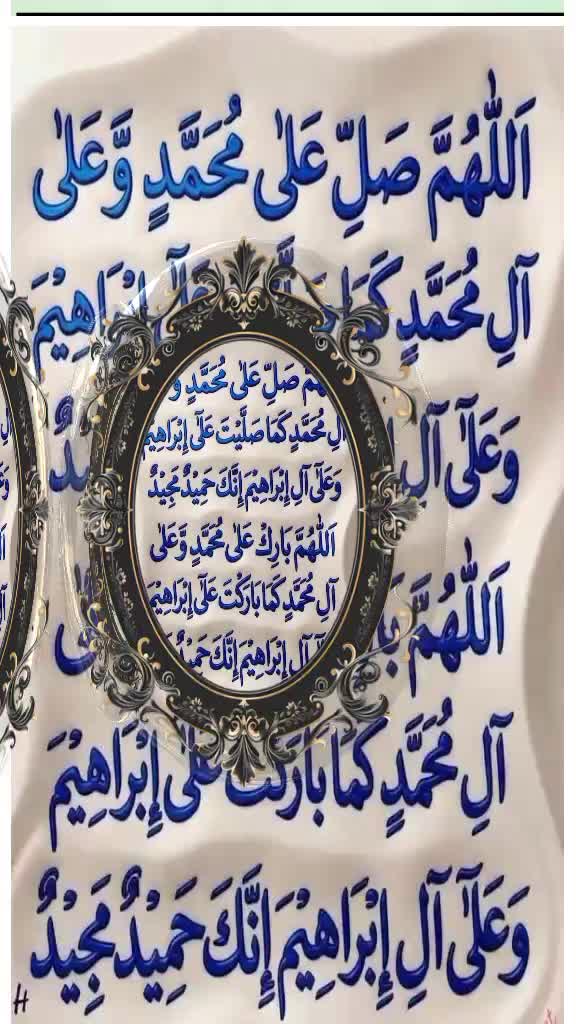 اَللّٰهُمَّ صَلِّ عَلٰى مُحَمَّدٍ وَّعَلٰى
آلِ مُحَمَّدٍ كَمَا عَلٰٓى اِبْرَاهِيْمَ
وَعَلٰٓى آلِ
اَللّٰهُمَّ
آلِ مُحَمَّدٍ كَمَا بَارَكْتَ عَلٰى اِبْرَاهِيْمَ
وَعَلٰٓى آلِ اِبْرَاهِيْمَ اِنَّكَ حَمِيْدٌ مَّجِيْدٌ
صَلِّ عَلٰى مُحَمَّدٍ وَّ
آلِ مُحَمَّدٍ كَمَا صَلَّيْتَ عَلٰٓى اِبْرَاهِيْمَ
وَعَلٰٓى آلِ اِبْرَاهِيْمَ اِنَّكَ حَمِيْدٌ مَّجِيْدٌ
اَللّٰهُمَّ بَارِكْ عَلٰى مُحَمَّدٍ وَّعَلٰى
آلِ مُحَمَّدٍ كَمَا بَارَكْتَ عَلٰٓى اِبْرَاهِيْمَ
آلِ اِبْرَاهِيْمَ اِنَّكَ حَمِيْدٌ
H